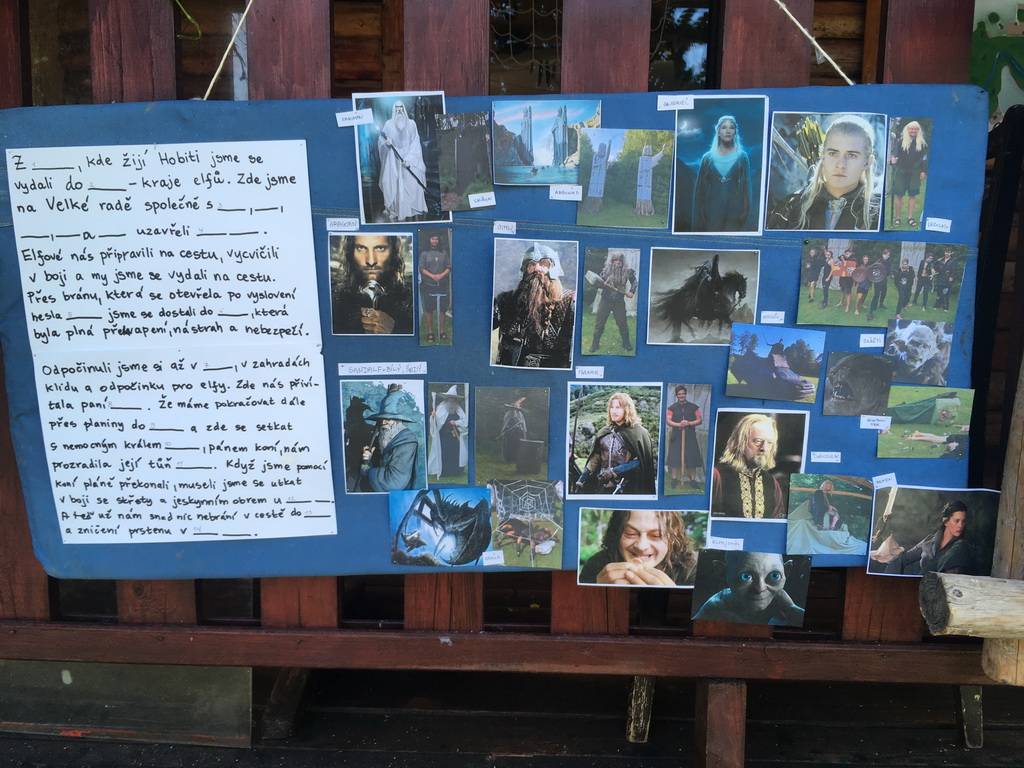 Z ____, kde žijí Hobiti jsme se
vydali do ____ - kraje elfů. Zde jsme
na Velké radě společně s ____, __,
____, __ a ____ uzavřeli ____ ____.
Elfové nás připravili na cestu, vycvičili
v boji a my jsme se vydali na cestu.
Přes bránu, která se otevřela po vyslovení
hesla ____ jsme se dostali do ____, která
byla plná překvapení, nástrah a nebezpečí.
Odpočinuli jsme si až v ____, v zahradách
klidu a odpočinku pro elfy. Zde nás přiví-
tala paní ____. Že máme pokračovat dále
přes planiny do ____ a zde se setkat
s nemocným králem ____, pánem koní, nám
prozradila její tůň ____. Když jsme pomocí
koní pláně překonali, museli jsme se utkat
v boji se skřety a jeskynním obrem u ____
A teď už nám snad nic nebrání v cestě do ____
a zničení prstenu v ____ ____.
SARUMAN
GALADRIEL
ARGONATH
LEGOLAS
ARAGORN
GIMLI
GANDALF - BÍLÝ, ŠEDÝ
FARAMIR